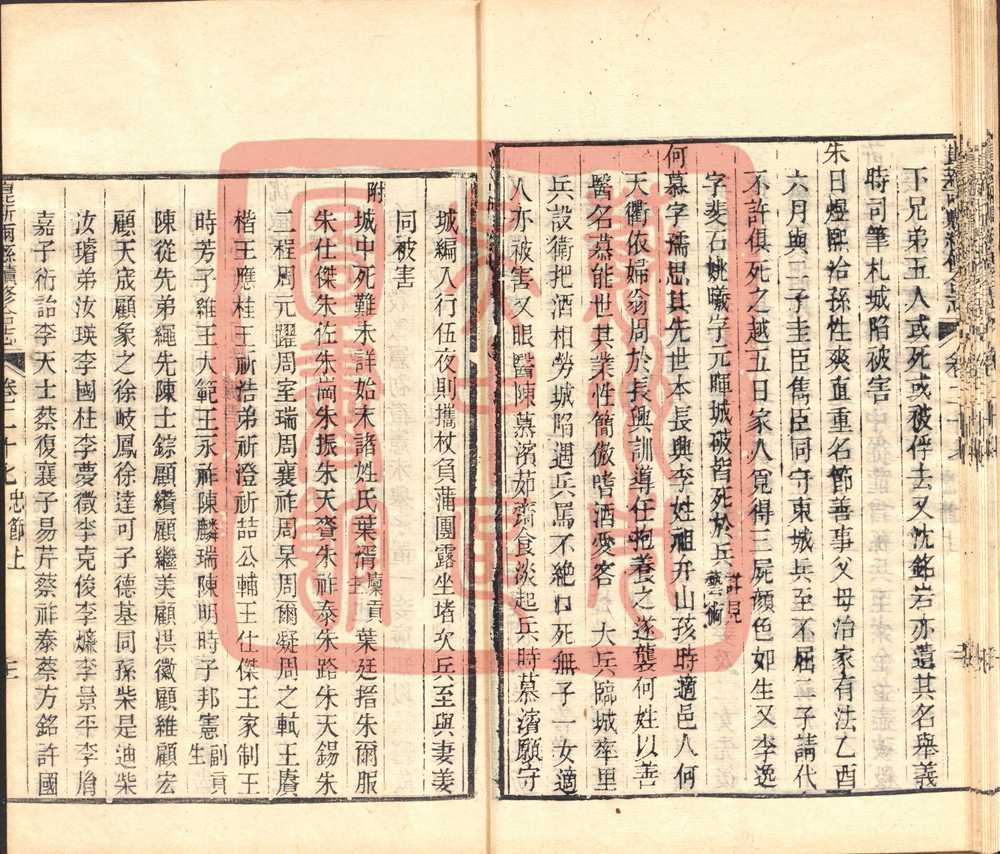 下兄弟五人或死或被俘去又沈銘岩亦遺其名舉義
時司筆札城陷被害
朱日煜熙治孫性爽直重名節善事父母治家有法乙酉
六月與二子圭臣雋臣同守東城兵至不屈二子請代
不許俱死之越五日家人覓得三屍顏色如生又李逸
字斐石姚曦字元暉城破皆死於兵詳見藝術
何慕字孺思其先世本長興李姓祖开山孩時適邑人何
天衢依婦翁周於長興訓導任抱養之遂襲何姓以善
醫名慕能世其業性簡傲嗜酒愛客 大兵臨城率里
兵設衛把酒相勞城陷遇兵罵不絕口死無子一女適
人亦被害又眼醫陳慕濱茹齋食淡起兵時慕濱願守
城編入行伍夜則攜杖負蒲團露坐堵矣兵至與妻姜
同被害
附城中死難未詳始末諸姓氏葉愲廩貢生葉廷搢朱爾服
朱仕傑朱佐朱崗朱振朱天賚朱祚泰朱路朱天錫朱
二程周元躍周室瑞周襄祚周杲周爾凝周之軾王賡
楷王應桂王祈浩弟祈澄祈喆公輔王仕傑王家制王
時芳子維王大範王永祚陳麟瑞陳明時子邦憲副貢生
陳從先弟繩先陳士錝顧纘顧繼美顧洪徽顧維顧宏
顧天宬顧象之徐岐鳳徐達可子德基同孫柴是迪柴
汝璿弟汝瑛李國柱李夢徵李克俊李爌李景平李脂
嘉子衍詒李天士蔡復襄子易芹蔡祚泰蔡方銘許國
崑新兩縣續修合志 卷二十七 忠節上 三